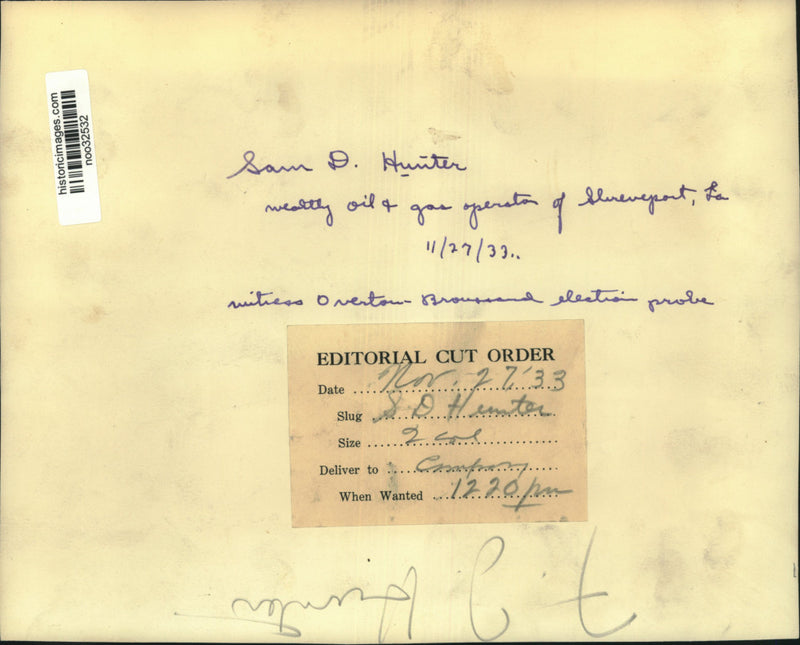 historicimages.com
noo32532
Sam D. Hunter
wealthy oil & gas operator of Shreveport, La
11/27/33..
witness Overton Broussard election probe
EDITORIAL CUT ORDER
Date Nov. 27, '33
Slug S D Hunter
Size 2 col
Deliver to
When Wanted 12 20 pm
Hunter